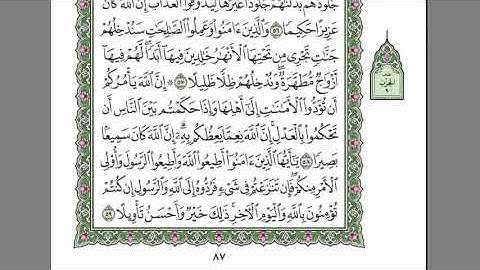 جُلُودُهُم بَدَّلْنَٰهُمْ جُلُودًا غَيْرَهَا لِيَذُوقُوا۟ ٱلْعَذَابَ إِنَّ ٱللَّهَ كَانَ
عَزِيزًا حَكِيمًا ۝٥٦ وَٱلَّذِينَ ءَامَنُوا۟ وَعَمِلُوا۟ ٱلصَّٰلِحَٰتِ سَنُدْخِلُهُمْ
جَنَّٰتٍ تَجْرِى مِن تَحْتِهَا ٱلْأَنْهَٰرُ خَٰلِدِينَ فِيهَآ أَبَدًا لَّهُمْ فِيهَآ
أَزْوَٰجٌ مُّطَهَّرَةٌ وَنُدْخِلُهُمْ ظِلًّا ظَلِيلًا ۝٥٧ ۞ إِنَّ ٱللَّهَ يَأْمُرُكُمْ
أَن تُؤَدُّوا۟ ٱلْأَمَٰنَٰتِ إِلَىٰٓ أَهْلِهَا وَإِذَا حَكَمْتُم بَيْنَ ٱلنَّاسِ أَن
تَحْكُمُوا۟ بِٱلْعَدْلِ إِنَّ ٱللَّهَ نِعِمَّا يَعِظُكُم بِهِۦٓ إِنَّ ٱللَّهَ كَانَ سَمِيعًۢا
بَصِيرًا ۝٥٨ يَٰٓأَيُّهَا ٱلَّذِينَ ءَامَنُوٓا۟ أَطِيعُوا۟ ٱللَّهَ وَأَطِيعُوا۟ ٱلرَّسُولَ وَأُو۟لِى
ٱلْأَمْرِ مِنكُمْ فَإِن تَنَٰزَعْتُمْ فِى شَىْءٍ فَرُدُّوهُ إِلَى ٱللَّهِ وَٱلرَّسُولِ إِن كُنتُمْ
تُؤْمِنُونَ بِٱللَّهِ وَٱلْيَوْمِ ٱلْءَاخِرِ ذَٰلِكَ خَيْرٌ وَأَحْسَنُ تَأْوِيلًا ۝٥٩
٨٧
الحزب
٩